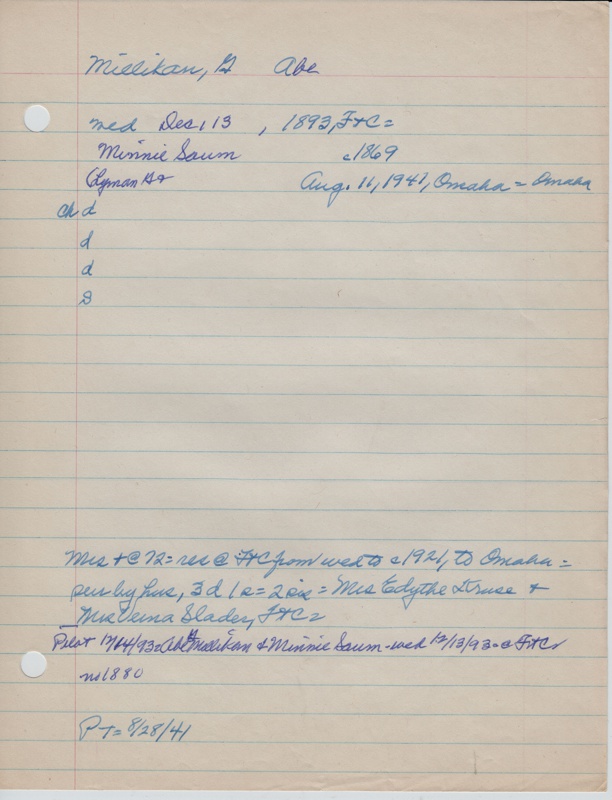 Millikan, G Abe
wed Dec, 13, 1893, F+C=
Minnie Saum c1869
(Lyman H+ Aug. 11, 1941, Omaha = Omaha
ch d
d
d
S
Mrs + @ 72 = res @ F+C from wed to c1921, to Omaha =
surv by hus, 3 d 1 s = 2 sis = Mrs Edythe Druse +
Mrs Verna Slader, F+C=
Pilot 12/14/93 = Abe G Millikan + Minnie Saum - wed 12/13/93 - @ F+C
ns 1880
PT = 8/28/41